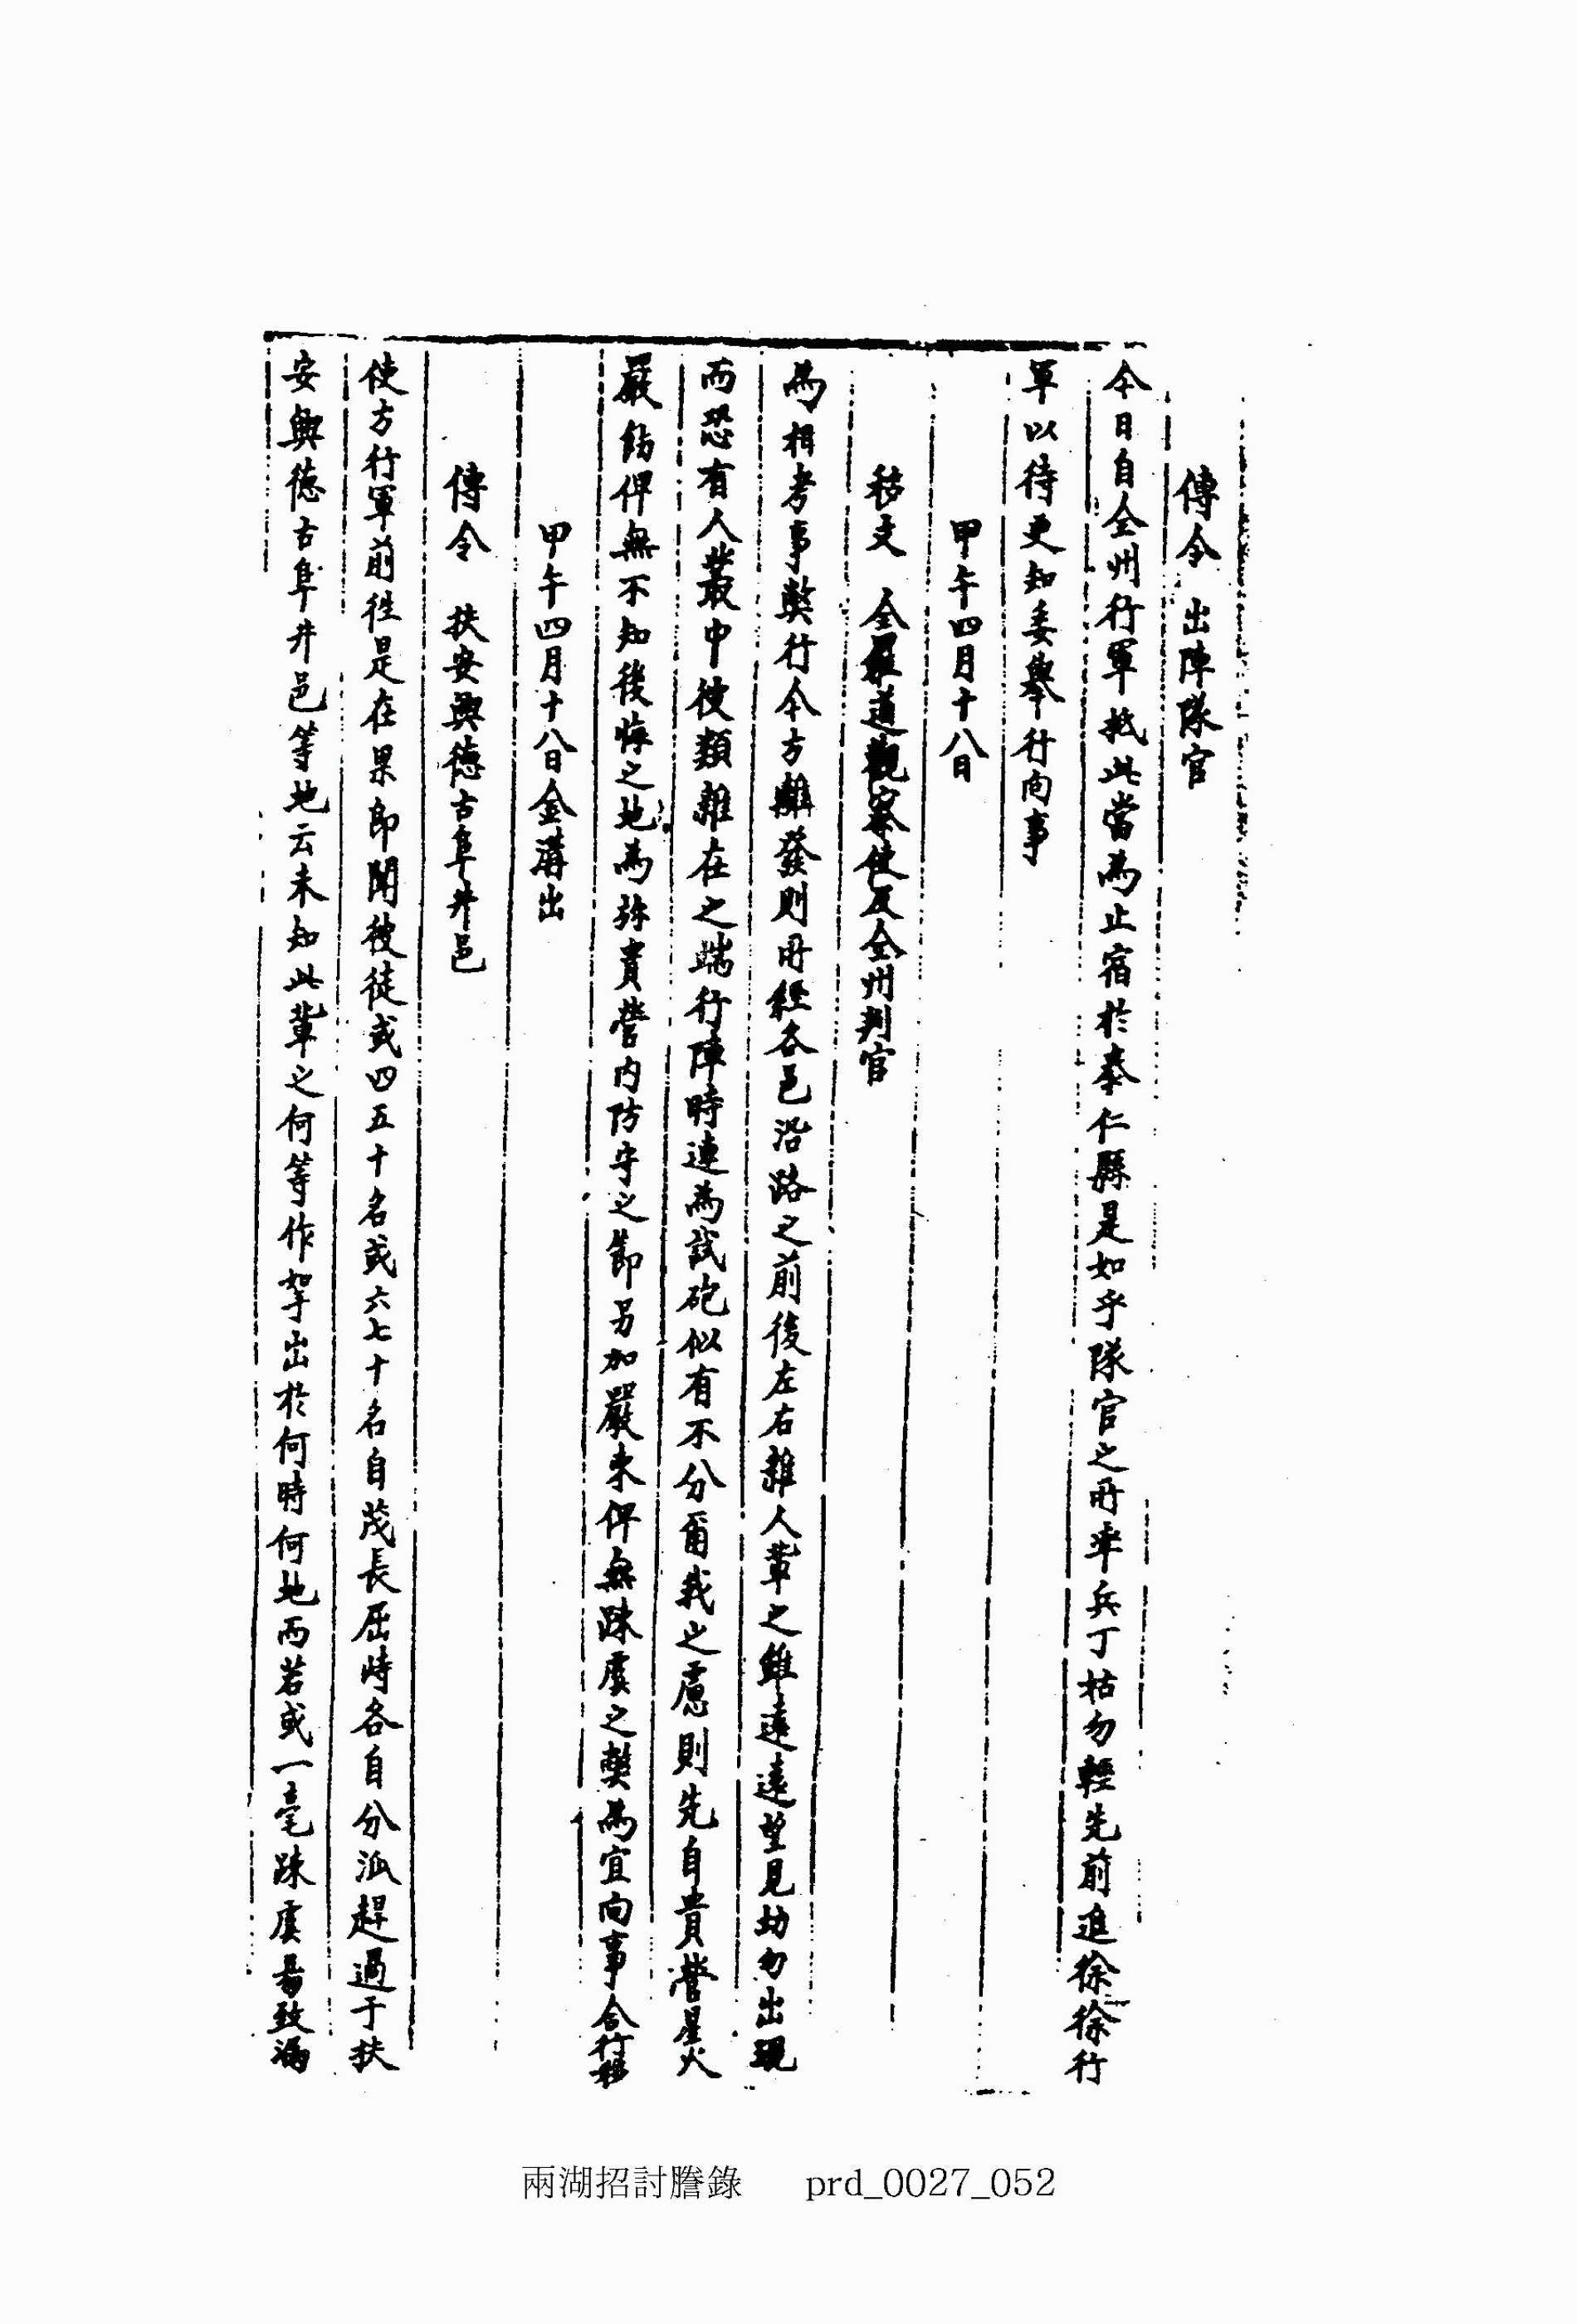 傳令 出陣隊官
今日自全州行軍抵此當爲止宿於泰仁縣是如乎隊官之所率兵丁姑勿輕先前進徐徐行
軍以待更知委擧行向事
甲午四月十八日
移文 全羅道觀察使及全州判官
爲相考事弊行今方離發則所經各邑沿路之前後左右雜人輩之雖遠遠望見切勿出現
而恐有人叢中彼類雜在之端行陣時連爲試砲似有不分爾我之慮則先自貴營星火
嚴飭俾無不知後悔之地爲旀貴營內防守之節另加嚴束俾無踈虞之弊爲宜向事合行移
甲午四月十八日金溝出
傳令 扶安興德古阜井邑
使方行軍前徃是在果卽聞彼徒或四五十名或六七十名自茂長屈峙各自分派趕過于扶
安興德古阜井邑等地云未知此輩之何等作挐出於何時何地而若或一毫踈虞易致滿
兩湖招討謄錄 prd_0027_052